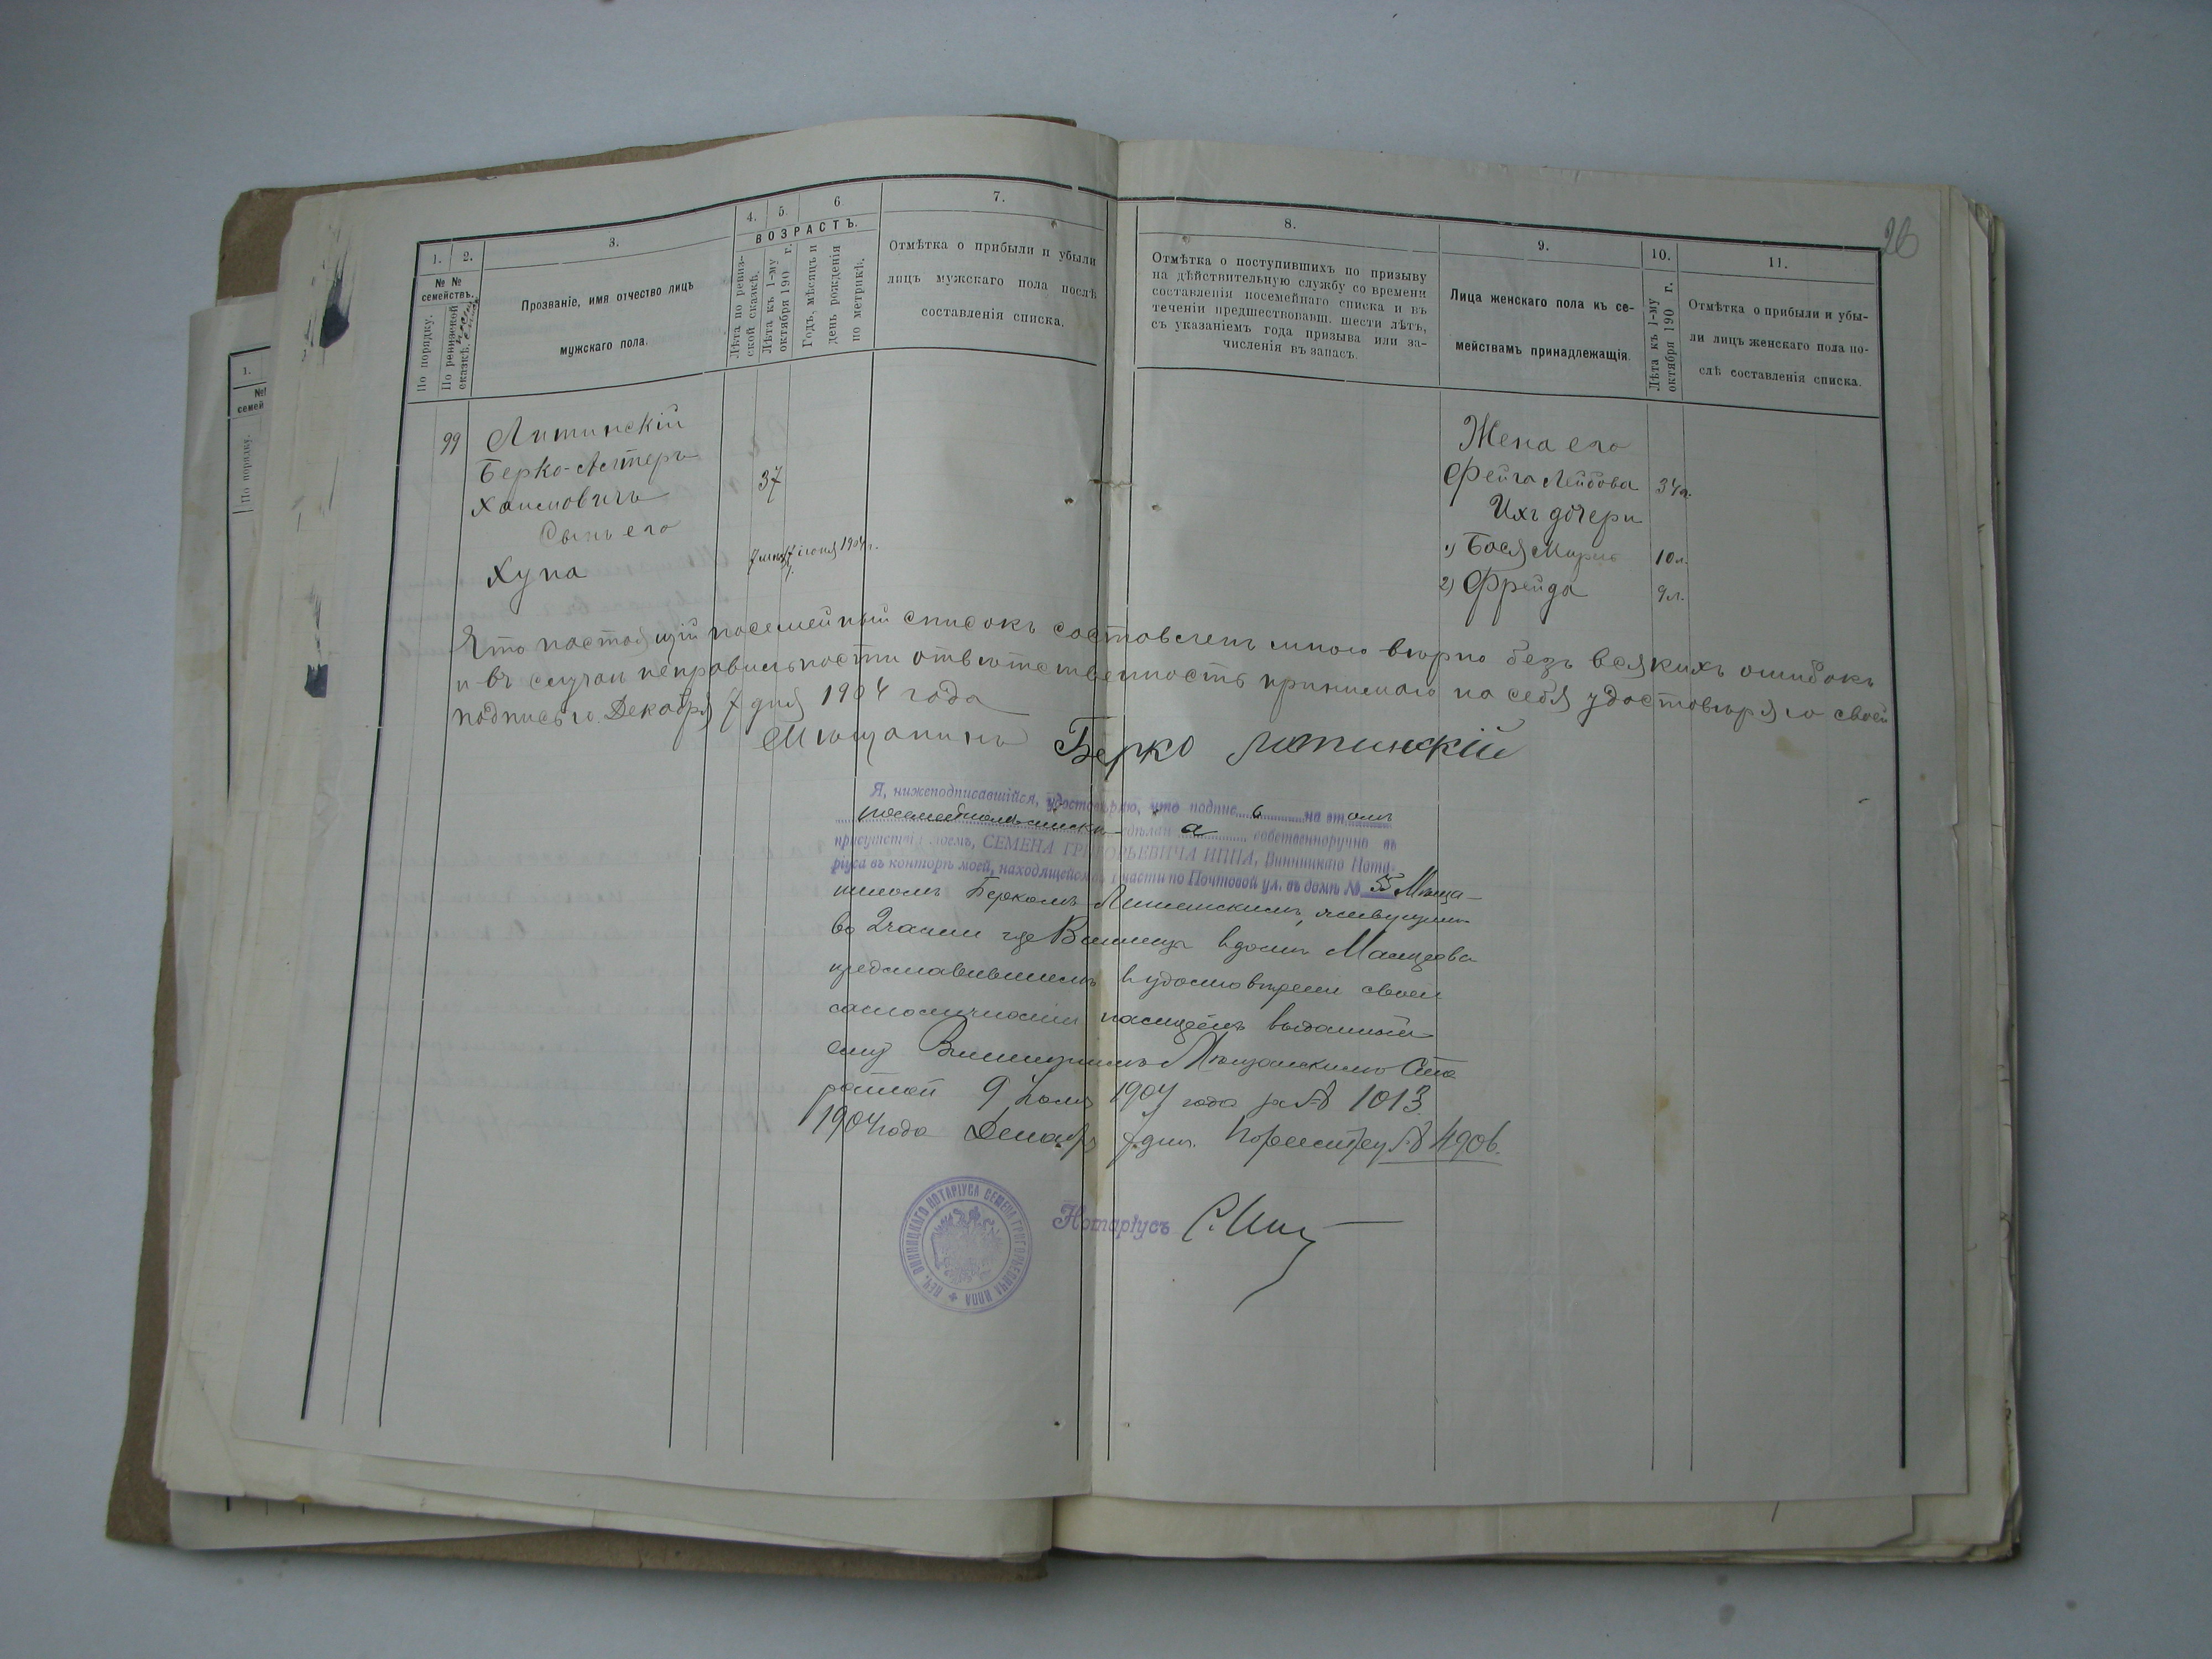 26
1. 2. 3. 4. 5. 6 7. 8. 9. 10. 11.
№ №
семействъ.
По порядку.
По ревизской
сказкѣ.
Прозваніе, имя отчество лицъ
мужскаго пола.
ВОЗРАСТЪ.
Лѣта по ревиз-
ской сказкѣ.
Лѣта къ 1-му
октября 190 г.
Годъ, мѣсяцъ и
день рожденія
по метрикѣ.
Отмѣтка о прибыли и убыли
лицъ мужскаго пола послѣ
составленія списка.
Отмѣтка о поступившихъ по призыву
на дѣйствительную службу со времени
составленія посемейнаго списка и въ
теченіи предшествовавш. шести лѣтъ,
съ указаніемъ года призыва или за-
численія въ запасъ.
Лица женскаго пола къ се-
мействамъ принадлежащія.
Лѣта къ 1-му
октября 190 г.
Отмѣтка о прибыли и убы-
ли лицъ женскаго пола по-
слѣ составленія списка.
1.
№
семей
По порядку.
99 Литинскій
Берко-Алтеръ
Хаимовичъ 37
Сынъ его
Хуна 7 іюня 1904 г.
Жена его
Фейга Лейбова 34 л.
Ихъ дочери
1) Бася Мирля 10 л.
2) Фрейда 9 л.
Что настоящій посемейный списокъ составленъ мною вѣрно безъ всякихъ ошибокъ
и въ случаи неправильности отвѣтственность принимаю на себя удостовѣряю своей
подписью. Декабря 7 дня 1904 года
Мѣщанинъ Берко Литинскій
Я, нижеподписавшійся, удостовѣряю, что подпис ь на эт омъ
посемейномъ списки сдѣлан а собственноручно въ
присутствіи моемъ, СЕМЕНА ГРИГОРЬЕВИЧА ИППА, Винницкаго Нота-
ріуса въ конторѣ моей, находящейся въ 1 части по Почтовой ул. въ домѣ № 55 Мѣща-
ниномъ Беркомъ Литинскимъ, живущимъ
во 2 части гор. Винницы в домѣ
представившемъ в удостовѣреніи своей
самоличности выданный
ему Винницкимъ Мѣщанскимъ Ста
ростой 9 1904 года за № 1013.
1904 года Декабря 7 дня. По реестру № 4906.
ПЕЧ. ВИННИЦКАГО НОТАРІУСА СЕМЕНА ГРИГОРЬЕВИЧА ИППА
Нотаріусъ С. Иппъ